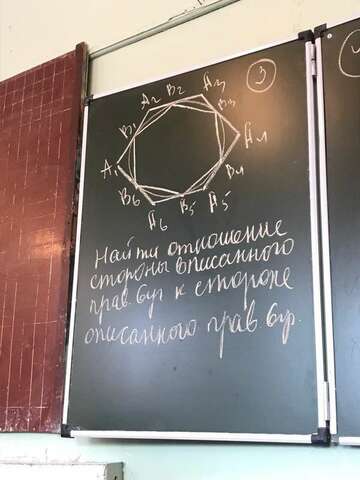 3
A3
B2
A2
B3
B1
A4
A1
B4
B6
B5
A5
A6
Найти отношение
стороны вписанного
прав. 6уг к стороне
описанного прав. 6уг.